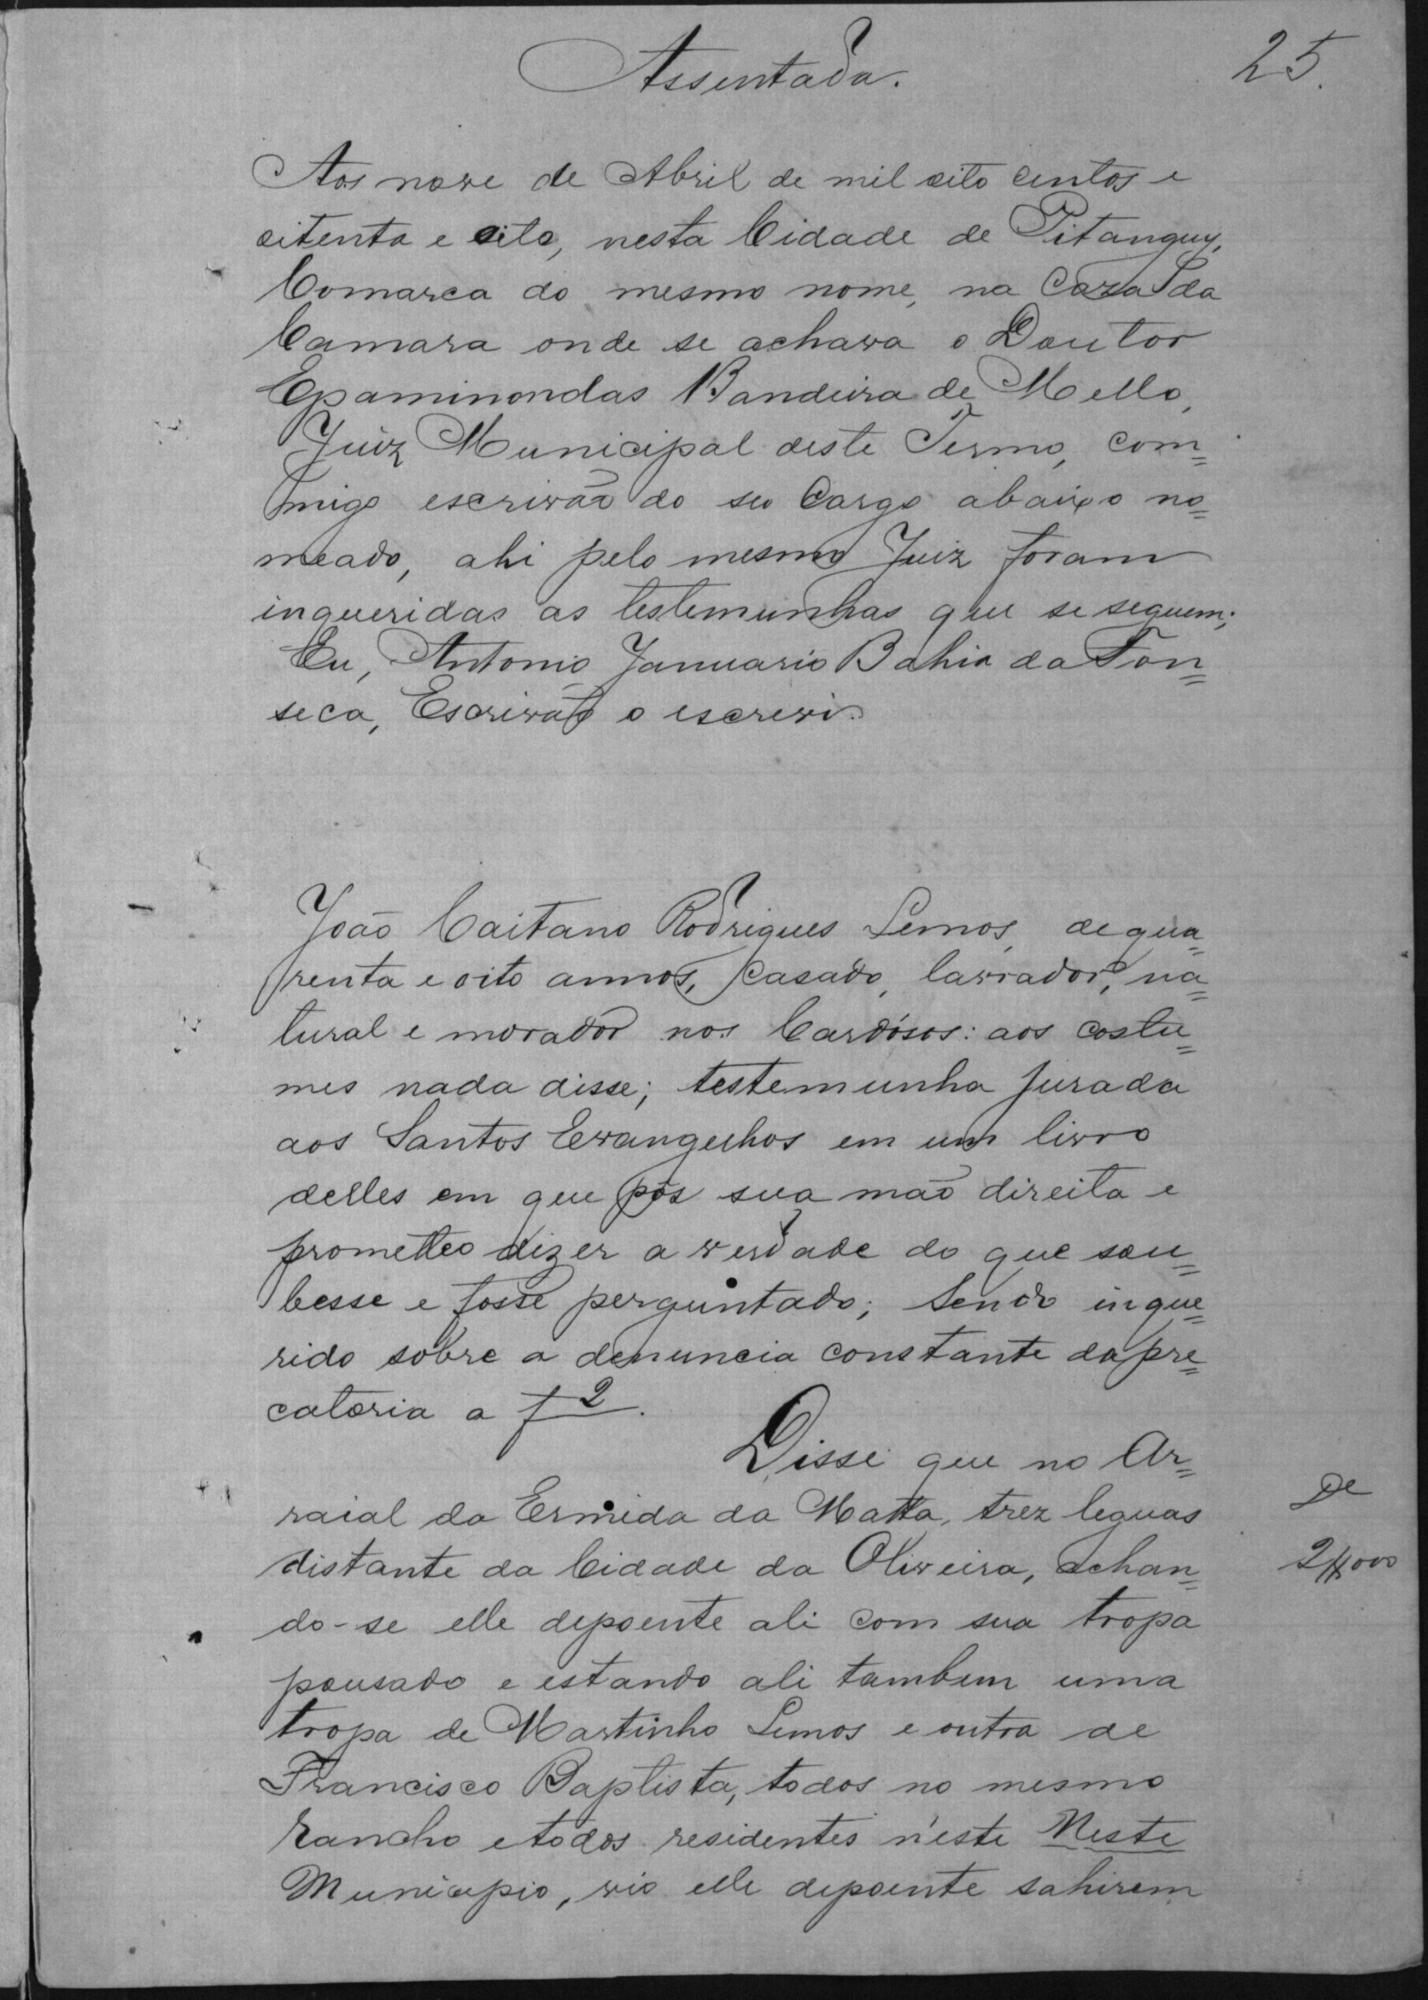 25.
Assentada.
Aos nove de Abril de mil oito centos e
oitenta e oito, nesta Cidade de Pitanguy,
Comarca do mesmo nome, na Caza da
Camara onde se achava o Doutor
Epaminondas Bandeira de Mello,
Juiz Municipal deste Termo, com=
migo escrivão do seo Cargo abaixo no=
meado, ahi pelo mesmo Juiz foram
inqueridas as testemunhas que se seguem;
Eu, Antonio Januario Bahia da Fon=
seca, Escrivão o escrevi.
João Caitano Rodrigues Lemos, de qua=
renta e oito annos, casado, lavrador, na=
tural e morador nos Cardósos: aos costu=
mes nada disse; testemunha jurada
aos Santos Evangelhos em um livro
delles em que pôs sua mão direita e
prometteo dizer a verdade do que sou=
besse e fosse perguntado; Sendo inque=
rido sobre a denuncia constante da pre=
catoria a f 2.
Disse que no Ar=
raial da Ermida da Matta, trez leguas
distante da Cidade da Oliveira, achan=
do-se elle depoente ali com sua tropa
pousado e estando ali tambem uma
tropa de Martinho Lemos e outra de
Francisco Baptista, todos no mesmo
rancho e todos residentes n'este Neste
Municipio, vio elle depoente sahirem
De
2$000